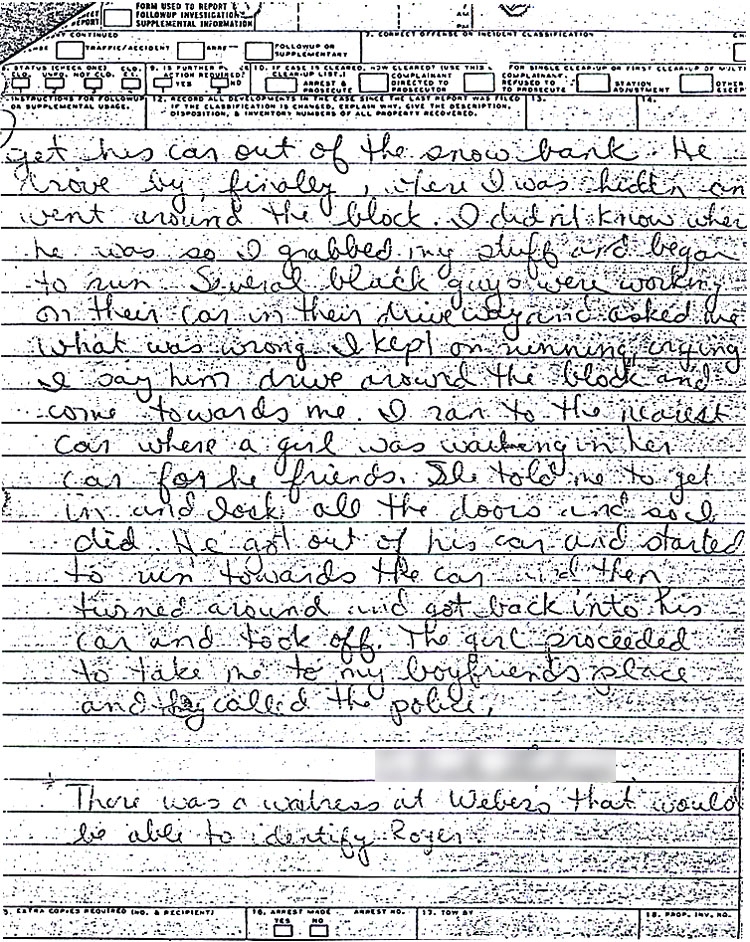 FORM USED TO REPORT &
FOLLOWUP INVESTIGATION
SUPPLEMENTAL INFORMATION
REPORT
AM
PM
CONTINUED
7. CORRECT OFFENSE OR INCIDENT CLASSIFICATION
TRAFFIC/ACCIDENT
FOLLOWUP OR
SUPPLEMENTARY
STATUS (CHECK ONE)
CLO. UNFD. NOT CLO. EX.
9. IS FURTHER
ACTION REQUIRED?
YES NO
10. IF CASE IS CLEARED, HOW CLEARED? (USE
CLEAR-UP LIST.)
ARREST &
PROSECUTE
COMPLAINANT
DIRECTED TO
PROSECUTE
FOR SINGLE CLEAR-UP OR FIRST CLEARUP OF
COMPLAINANT
REFUSED
TO PROSECUTE
STATION
ADJUSTMENT
OTHER
INSTRUCTIONS FOR FOLLOWUP
OR SUPPLEMENTAL USAGE.
12. RECORD ALL DEVELOPMENTS IN THE CASE SINCE THE LAST REPORT WAS FILED
IF THE CLASSIFICATION IS CHANGED, EXPLAIN WHY. GIVE THE DESCRIPTION,
DISPOSITION, & INVENTORY NUMBERS OF ALL PROPERTY RECOVERED.
13.
14.
get his car out of the snow bank. He
drove by, finally, where I was hidden an
went around the block. I didn't know wher
he was so I grabbed my stuff and began
to run. Several black guys were working
on their car in their driveway and asked me
what was wrong. I kept on running, crying
I say him drive around the block and
come towards me. I ran to the nearest
car where a girl was waiting in her
car for he friends. She told me to get
in and lock all the doors and so I
did. He got out of his car and started
to run towards the car and then
turned around and got back into his
car and took off. The girl proceeded
to take me to my boyfriends place
and they called the police.
There was a waitress at Weber's that would
be able to identify Roger.
EXTRA COPIES REQUIRED (NO. & RECIPIENT)
16. ARREST MADE
YES NO
ARREST NO.
17. TOW BY
18. PROP. INV. NO.